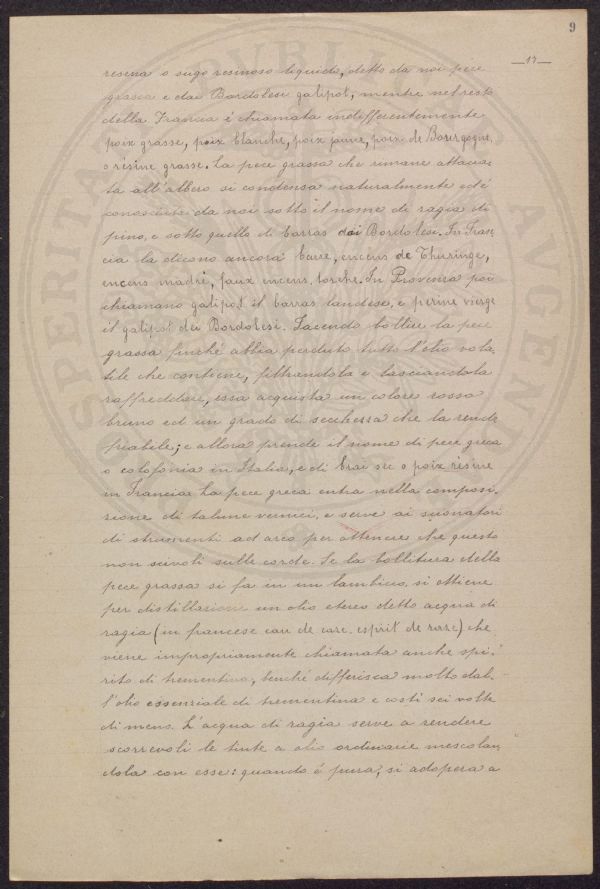 9
—17—
resina o sugo resinoso liquido, detto da noi pece
grassa e dai Bordolesi galipot, mentre nel resto
della Francia è chiamata indifferentemente
poix grasse, poix blanche, poix jaune, poix de Bourgogne,
o résine grasse. La pece grassa che rimane attacca-
ta all'albero si condensa naturalmente ed è
conosciuta da noi sotto il nome di ragia di
pino, e sotto quello di barras dai Bordolesi. In Fran-
cia la dicono ancora barre, encens de Thuringe,
encens madré, faux encens, torche. In Provenza poi
chiamano galipot il barras landese, e perine vierge
il galipot dei Bordolesi. Facendo bollire la pece
grassa finché abbia perduto tutto l'olio vola-
tile che contiene, filtrandola e lasciandola
raffreddare, essa acquista un colore rosso
bruno ed un grado di secchezza che la rende
friabile; e allora prende il nome di pece greca
o colofonia in Italia, e di brai sec o poix résine
in Francia. La pece greca entra nella composi-
zione di talune vernici, e serve ai suonatori
di strumenti ad arco per ottenere che questo
non scivoli sulle corde. Se la bollitura della
pece grassa si fa in un lambicco, si ottiene
per distillazione un olio etereo detto acqua di
ragia (in francese eau de rase, esprit de rase) che
viene impropriamente chiamata anche spi-
rito di trementina, benché differisca molto dal-
l'olio essenziale di trementina e costi sei volte
di meno. L'acqua di ragia serve a rendere
scorrevoli le tinte a olio ordinarie mescolan
dola con esse: quando è pura, si adopera a